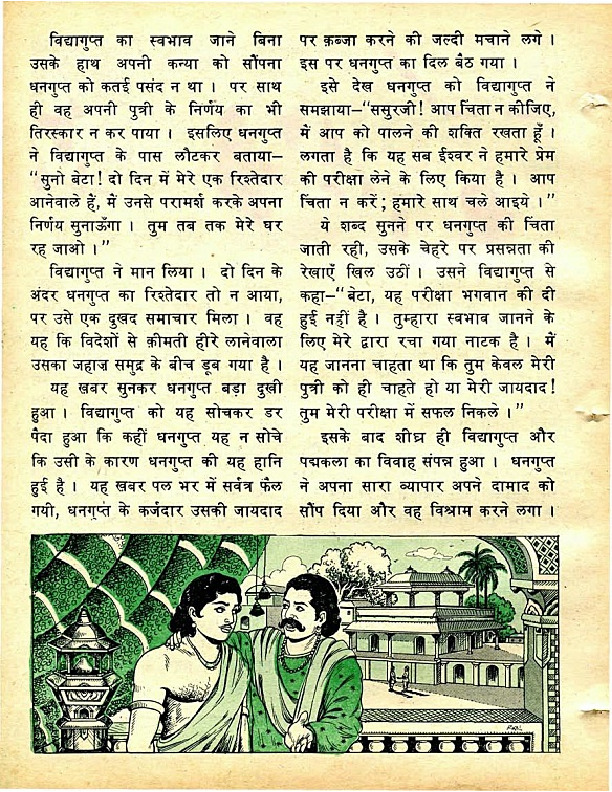 विद्यागुप्त का स्वभाव जाने बिना
उसके हाथ अपनी कन्या को सौंपना
धनगुप्त को कतई पसंद न था। पर साथ
ही वह अपनी पुत्री के निर्णय का भी
तिरस्कार न कर पाया। इसलिए धनगुप्त
ने विद्यागुप्त के पास लौटकर बताया–
“सुनो बेटा! दो दिन में मेरे एक रिश्तेदार
आनेवाले हैं, मैं उनसे परामर्श करके अपना
निर्णय सुनाऊँगा। तुम तब तक मेरे घर
रह जाओ।”
विद्यागुप्त ने मान लिया। दो दिन के
अंदर धनगुप्त का रिश्तेदार तो न आया,
पर उसे एक दुखद समाचार मिला। वह
यह कि विदेशों से क़ीमती हीरे लानेवाला
उसका जहाज़ समुद्र के बीच डूब गया है।
यह खबर सुनकर धनगुप्त बड़ा दुखी
हुआ। विद्यागुप्त को यह सोचकर डर
पैदा हुआ कि कहीं धनगुप्त यह न सोचे
कि उसी के कारण धनगुप्त की यह हानि
हुई है। यह खबर पल भर में सर्वत्र फैल
गयी, धनगुप्त के कर्जदार उसकी जायदाद
पर क़ब्जा करने की जल्दी मचाने लगे।
इस पर धनगुप्त का दिल बैठ गया।
इसे देख धनगुप्त को विद्यागुप्त ने
समझाया–“ससुरजी! आप चिंता न कीजिए,
मैं आप को पालने की शक्ति रखता हूँ।
लगता है कि यह सब ईश्वर ने हमारे प्रेम
की परीक्षा लेने के लिए किया है। आप
चिंता न करें; हमारे साथ चले आइये।”
ये शब्द सुनने पर धनगुप्त की चिंता
जाती रही, उसके चेहरे पर प्रसन्नता की
रेखाएँ खिल उठीं। उसने विद्यागुप्त से
कहा–“बेटा, यह परीक्षा भगवान की दी
हुई नहीं है। तुम्हारा स्वभाव जानने के
लिए मेरे द्वारा रचा गया नाटक है। मैं
यह जानना चाहता था कि तुम केवल मेरी
पुत्री को ही चाहते हो या मेरी जायदाद!
तुम मेरी परीक्षा में सफल निकले।”
इसके बाद शीघ्र ही विद्यागुप्त और
पद्मकला का विवाह संपन्न हुआ। धनगुप्त
ने अपना सारा व्यापार अपने दामाद को
सौंप दिया और वह विश्राम करने लगा।